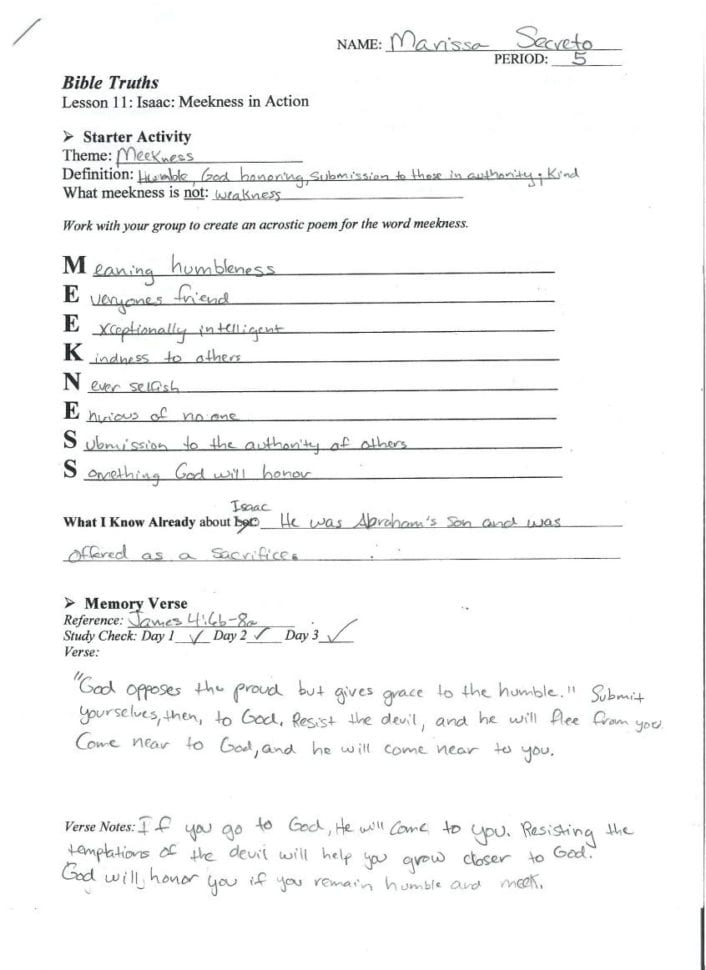 NAME: Marissa Secreto
PERIOD: 5
Bible Truths
Lesson 11: Isaac: Meekness in Action
➤ Starter Activity
Theme: Meekness
Definition: Humble, God honoring, submission to those in authority, Kind
What meekness is not: weakness
Work with your group to create an acrostic poem for the word meekness.
M eaning humbleness
E veryones friend
E xceptionally intelligent
K indness to others
N ever selfish
E nvious of no one
S ubmission to the authority of others
S omething God will honor
Isaac
What I Know Already about He was Abraham's Son and was
offered as a sacrifice.
➤ Memory Verse
Reference: James 4:6b-8a
Study Check: Day 1 ✓ Day 2 ✓ Day 3 ✓
Verse:
"God opposes the proud but gives grace to the humble." Submit
yourselves, then, to God. Resist the devil, and he will flee from you.
Come near to God, and he will come near to you.
Verse Notes: If you go to God, He will come to you. Resisting the
temptations of the devil will help you grow closer to God.
God will honor you if you remain humble and meek.